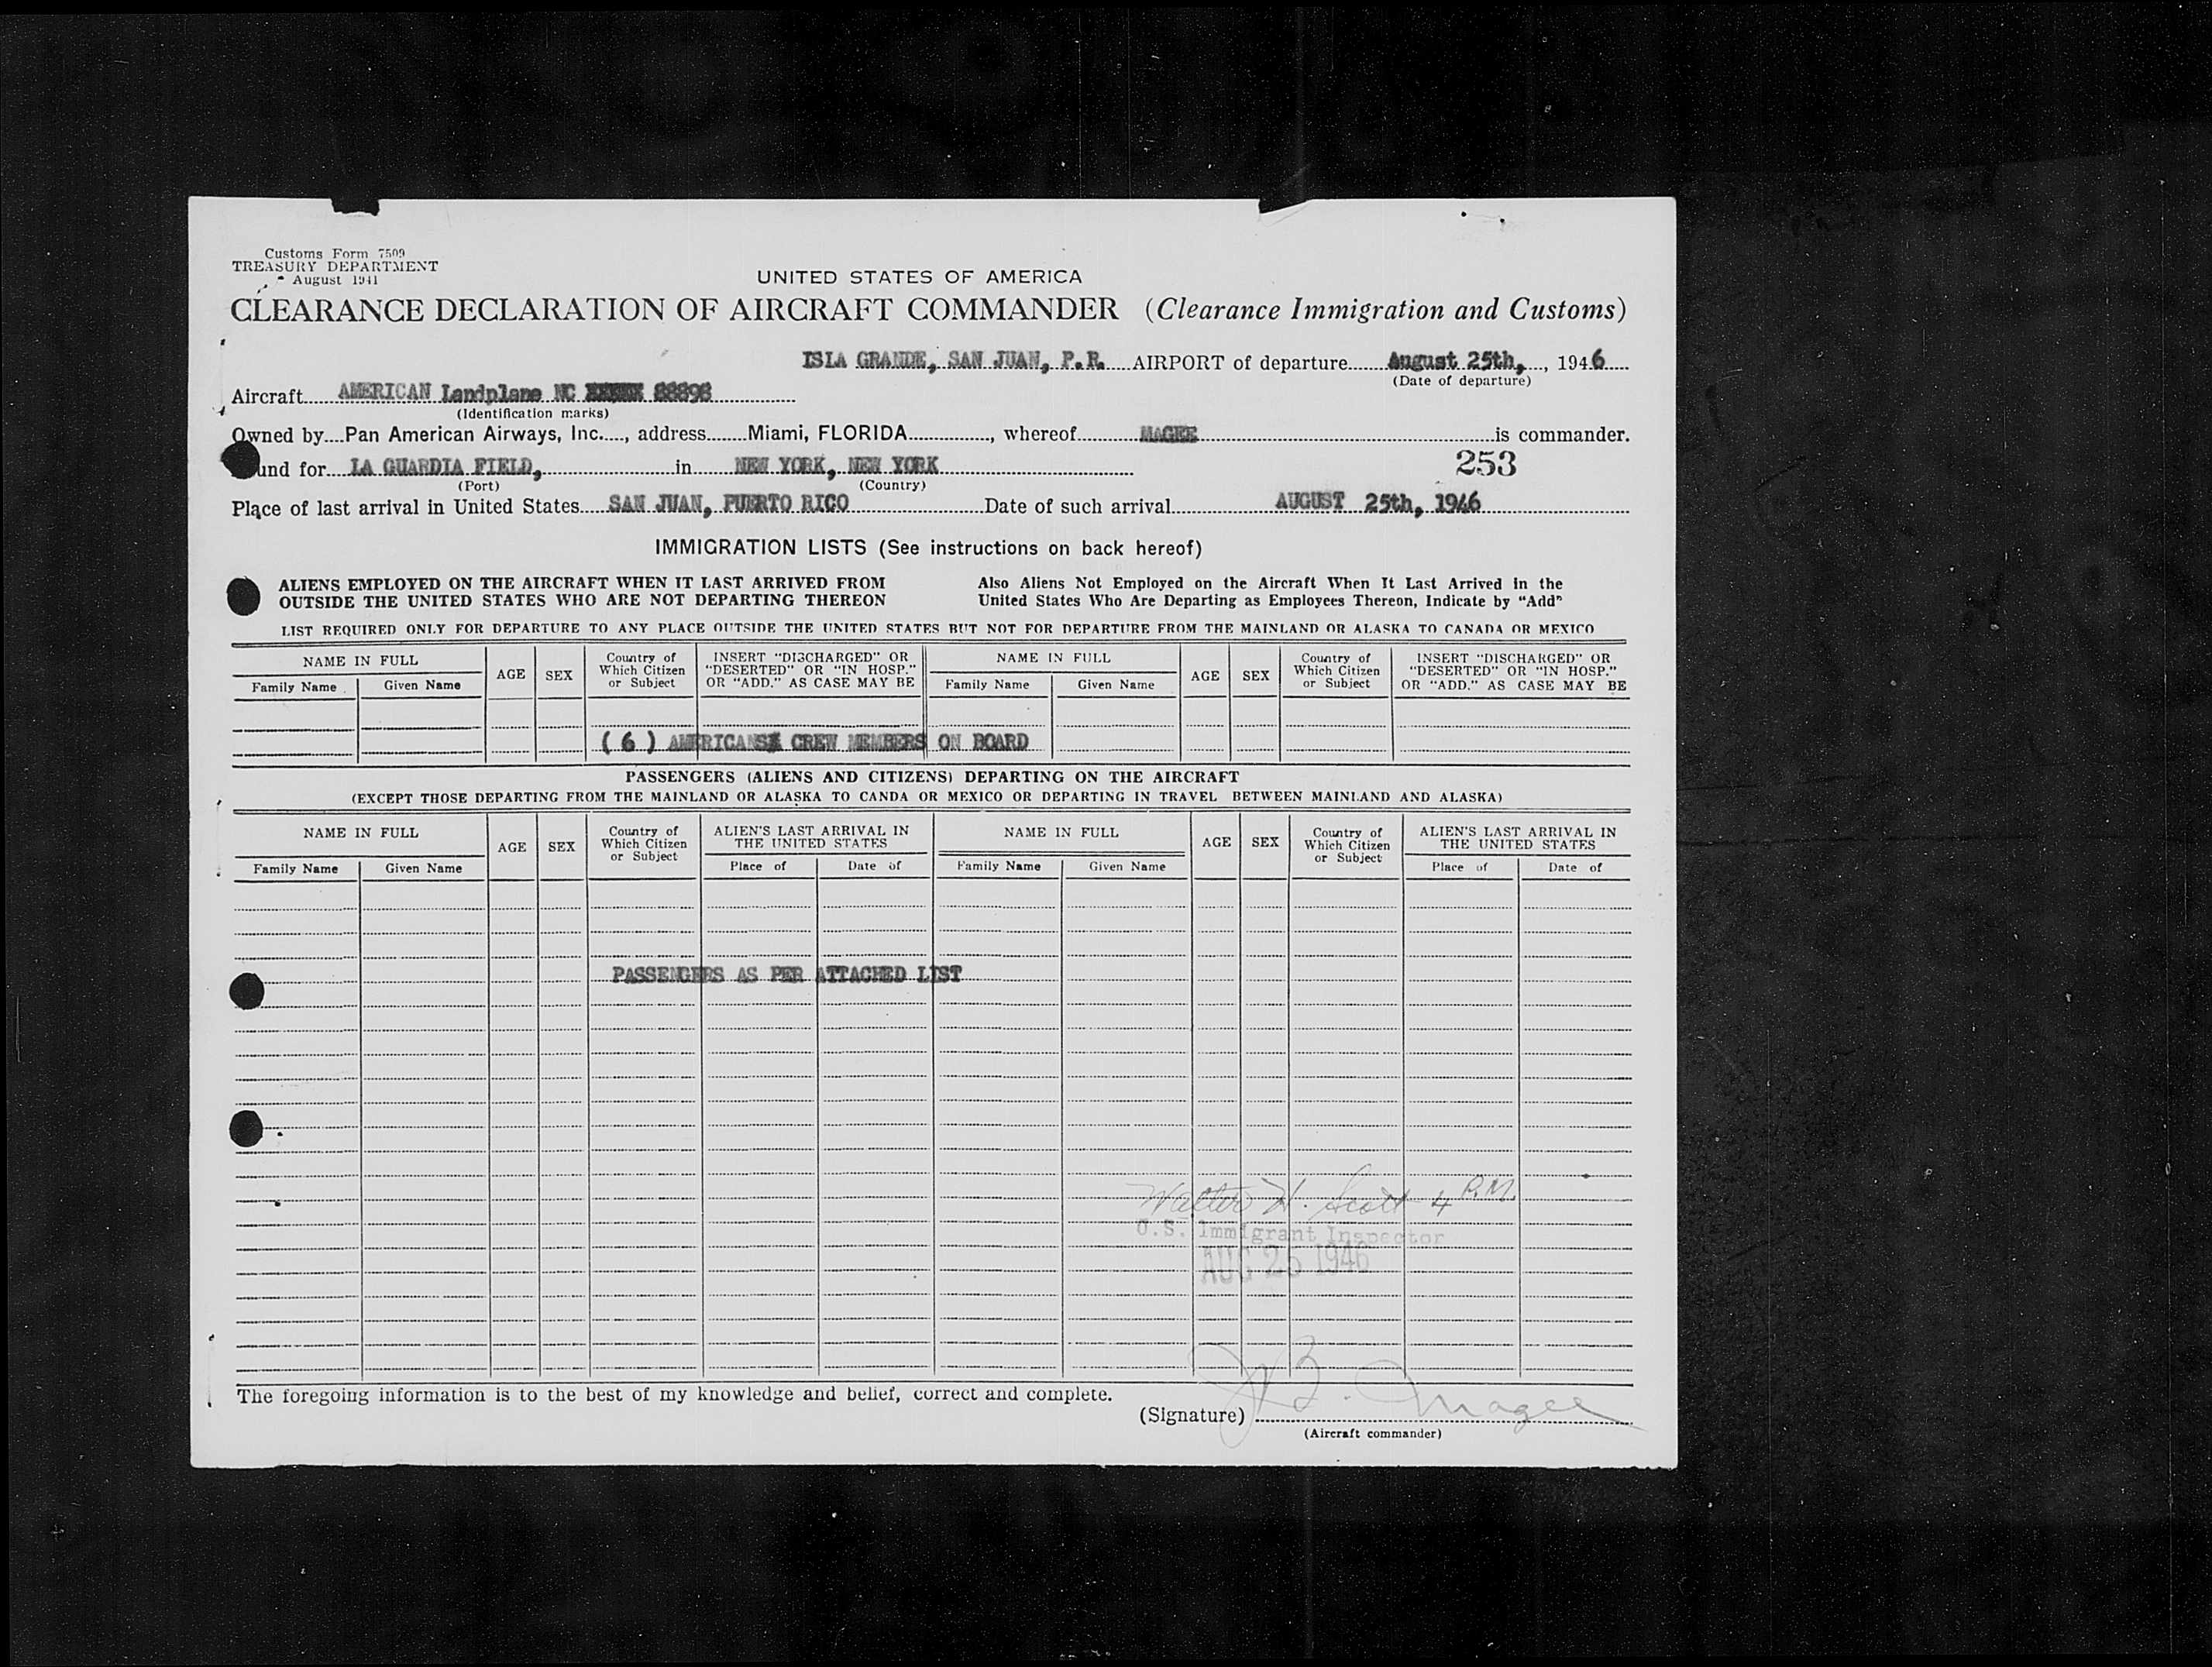 Customs Form 7509
TREASURY DEPARTMENT
August 1941
UNITED STATES OF AMERICA
CLEARANCE DECLARATION OF AIRCRAFT COMMANDER (Clearance Immigration and Customs)
ISLA GRANDE, SAN JUAN, P.R. AIRPORT of departure August 25th, , 1946
(Date of departure)
Aircraft AMERICAN Landplane NC 88898
(Identification marks)
Owned by Pan American Airways, Inc. , address Miami, FLORIDA , whereof MAGEE is commander.
und for LA GUARDIA FIELD, in NEW YORK, NEW YORK 253
(Port) (Country)
Place of last arrival in United States SAN JUAN, PUERTO RICO Date of such arrival AUGUST 25th, 1946
IMMIGRATION LISTS (See instructions on back hereof)
ALIENS EMPLOYED ON THE AIRCRAFT WHEN IT LAST ARRIVED FROM
OUTSIDE THE UNITED STATES WHO ARE NOT DEPARTING THEREON
Also Aliens Not Employed on the Aircraft When It Last Arrived in the
United States Who Are Departing as Employees Thereon, Indicate by "Add"
LIST REQUIRED ONLY FOR DEPARTURE TO ANY PLACE OUTSIDE THE UNITED STATES BUT NOT FOR DEPARTURE FROM THE MAINLAND OR ALASKA TO CANADA OR MEXICO
NAME IN FULL
Family Name Given Name
AGE SEX
Country of
Which Citizen
or Subject
INSERT "DISCHARGED" OR
"DESERTED" OR "IN HOSP."
OR "ADD." AS CASE MAY BE
NAME IN FULL
Family Name Given Name
AGE SEX
Country of
Which Citizen
or Subject
INSERT "DISCHARGED" OR
"DESERTED" OR "IN HOSP."
OR "ADD." AS CASE MAY BE
( 6 ) AMERICANS CREW MEMBERS ON BOARD
PASSENGERS (ALIENS AND CITIZENS) DEPARTING ON THE AIRCRAFT
(EXCEPT THOSE DEPARTING FROM THE MAINLAND OR ALASKA TO CANDA OR MEXICO OR DEPARTING IN TRAVEL BETWEEN MAINLAND AND ALASKA)
NAME IN FULL
Family Name Given Name
AGE SEX
Country of
Which Citizen
or Subject
ALIEN'S LAST ARRIVAL IN
THE UNITED STATES
Place of Date of
NAME IN FULL
Family Name Given Name
AGE SEX
Country of
Which Citizen
or Subject
ALIEN'S LAST ARRIVAL IN
THE UNITED STATES
Place of Date of
PASSENGERS AS PER ATTACHED LIST
Walter H. Scott 4 P.M.
U.S. Immigrant Inspector
AUG 25 1946
The foregoing information is to the best of my knowledge and belief, correct and complete.
(Signature) B. Magee
(Aircraft commander)